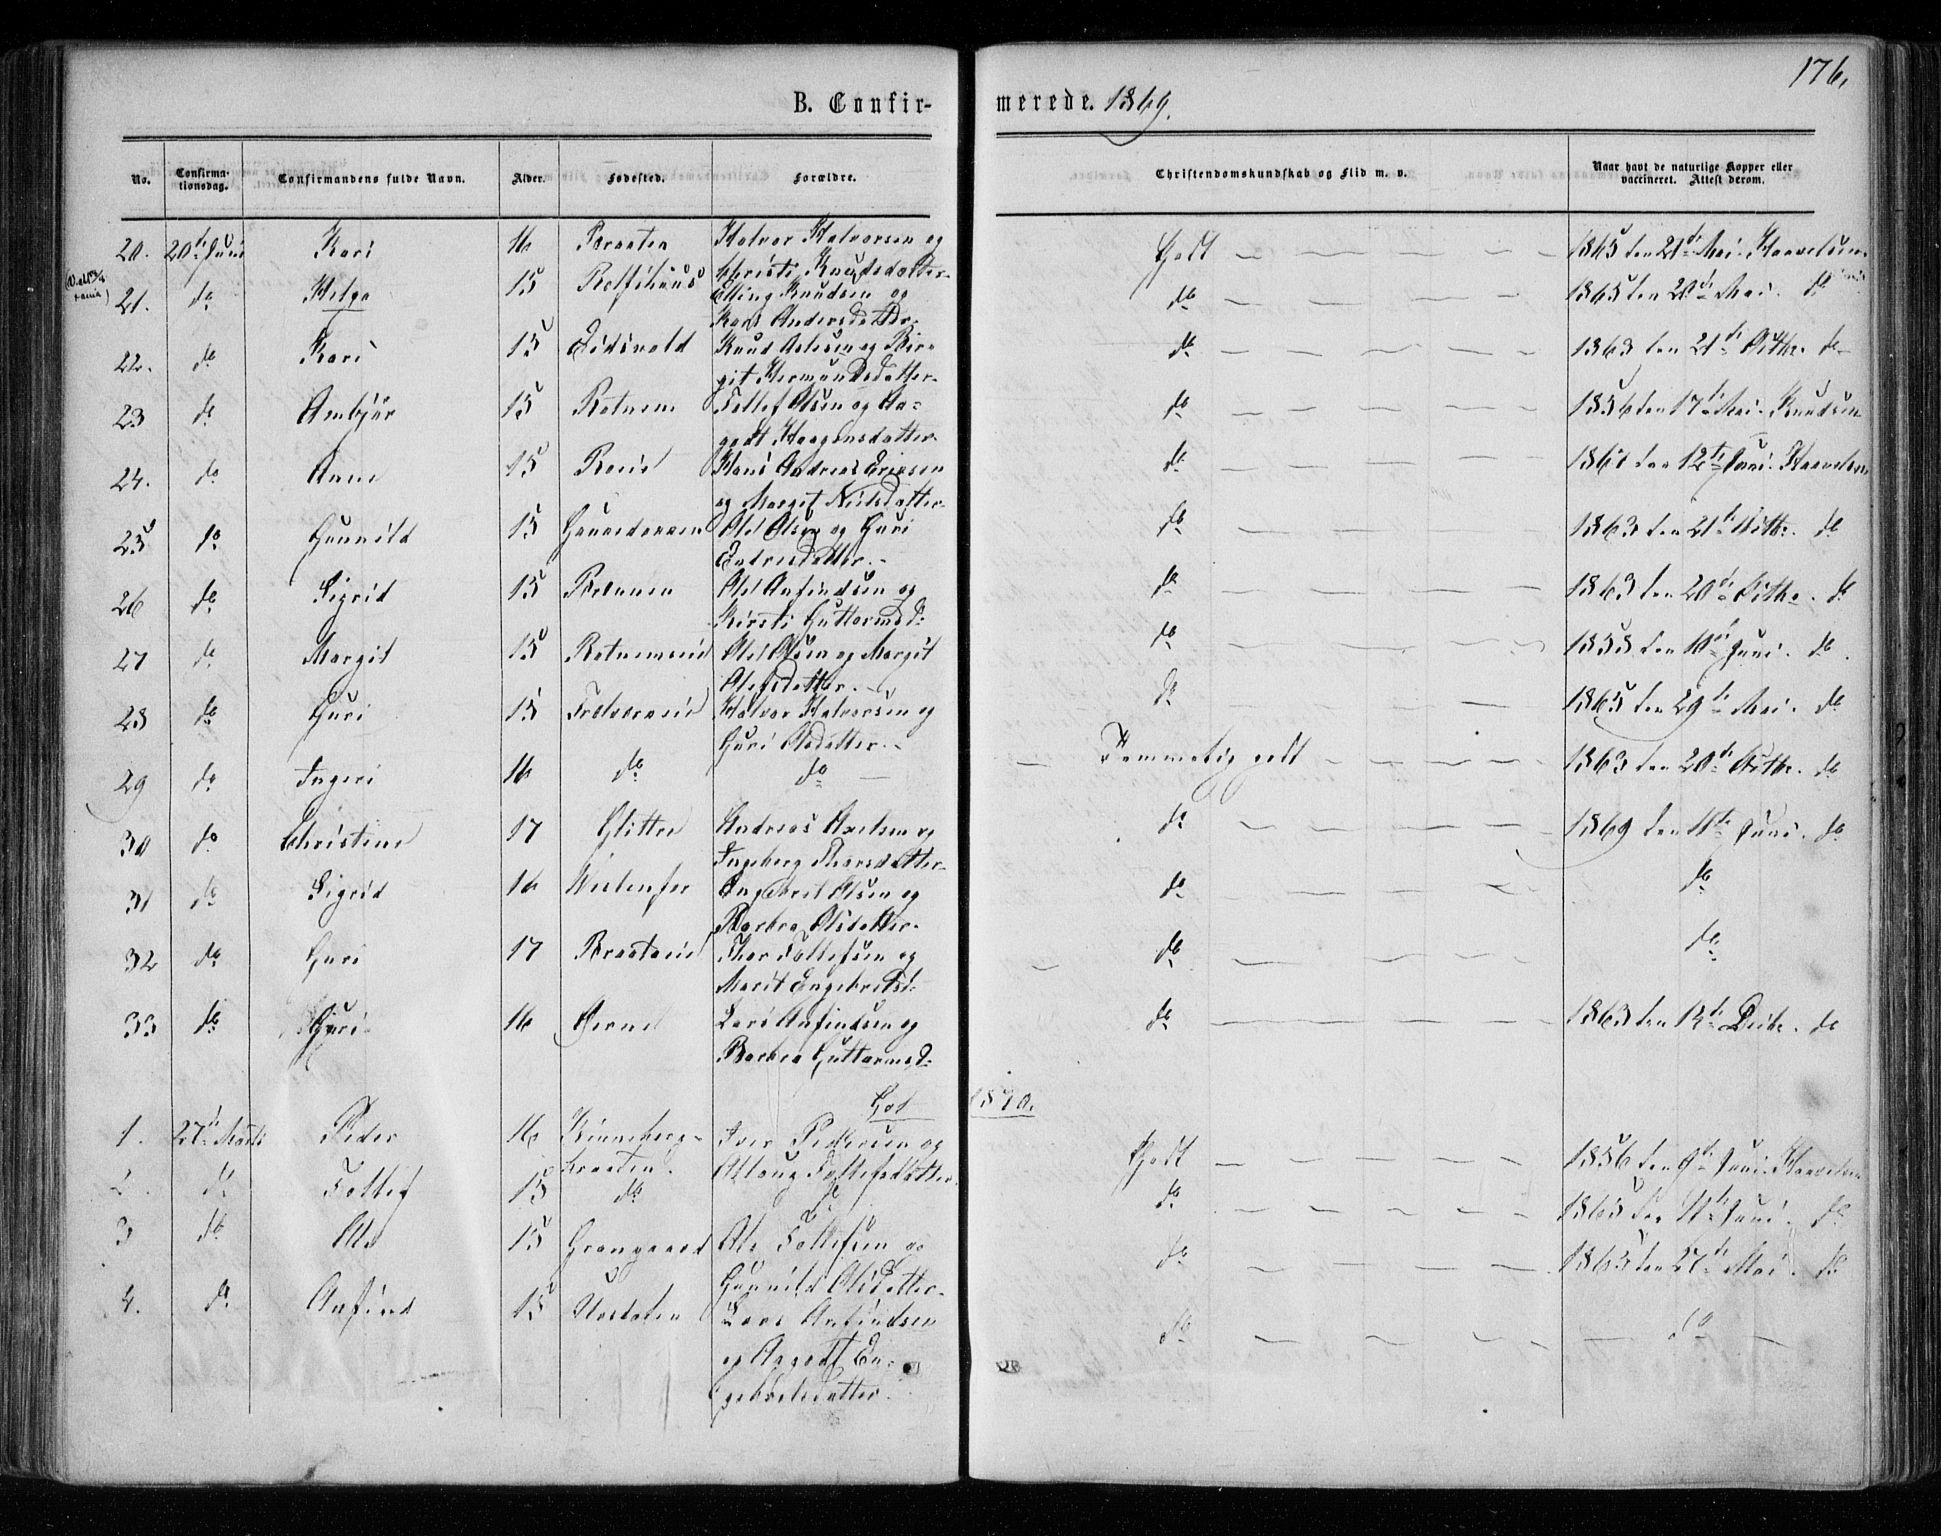 176.
B. Confir- merede. 1869.
No. Confirma-tionsdag. Confirmandens fulde Navn. Alder. Fødested. Forældre. Christendomskundskab og Flid m. v. Naar havt de naturlige Kopper eller vaccineret. Attest derom.
20. 20de Juni Kari 16 Braaten Halvor Halvorsen og Christi Knudsdatter. Godt 1865 den 21de Mai. Haavelsen
21. do Helga 15 Rolfshuus Elling Knudsen og Kari Andersdatter. do 1865 den 20de Mai. do
22. do Kari 15 Eidsvold Knud Aslesen og Bir-git Hermundsdatter. do 1863 den 21de Octbr. do
23 do Ambjør 15 Rotnem Tollef Olsen og Aa-godt Haagensdatter. do 1856 den 17de Mai. Knudsen
24. do Anne 15 Hans Andreas Ericsen og Margit Nilsdatter. do 1861 den 12te Juni. Haavelsen
25 do Gunnild 15 Ole Olsen og Guri Endresdatter. do 1863 den 21de Octbr. do
26 do Sigrid 15 Brennen Ole Anfindsen og Kirsti Guttormsd: do 1863 den 20de Octbr. do
27 do Margit 15 Rotnemeie Ole Olsen og Margit Olefsdatter. do 1858 den 10de Juni. do
28 do Guri 15 Halvor Halvorsen og Guri Olsdatter. do 1865 den 29de Mai. do
29 do Ingeri 16 do do Temmelig godt 1863 den 20de Octbr. do
30 do Christine 17 Glitre Andreas Axelsen og Ingeborg Thorsdatter. do 1869 den 11te Juni. do
31 do Sigrid 16 Engebret Olsen og Barbro Olsdatter. do do
32 do Guri 17 Braateneie Thor Tollefsen og Marit Engebretsd: do do
33 do Guri 16 Lars Anfindsen og Barbra Guttormsd: do 1863 den 13de Decbr. do
Gol 1870.
1. 27de Marts Peder 16 Kinneberg-braaten. Iver Pedersen og Aslaug Tollefsdatter. Godt 1856 den 9de Juni. Haavelsen
2. do Tollef 15 do do do 1865 den 11te Juni. do
3 do Ole 15 Grangaard Ole Tollefsen og Gunnild Olsdatter. do 1865 den 27de Mai. do
4. do Anfind 15 Ustedalen Lars Anfindsen og Aagodt En-gebretsdatter. do do